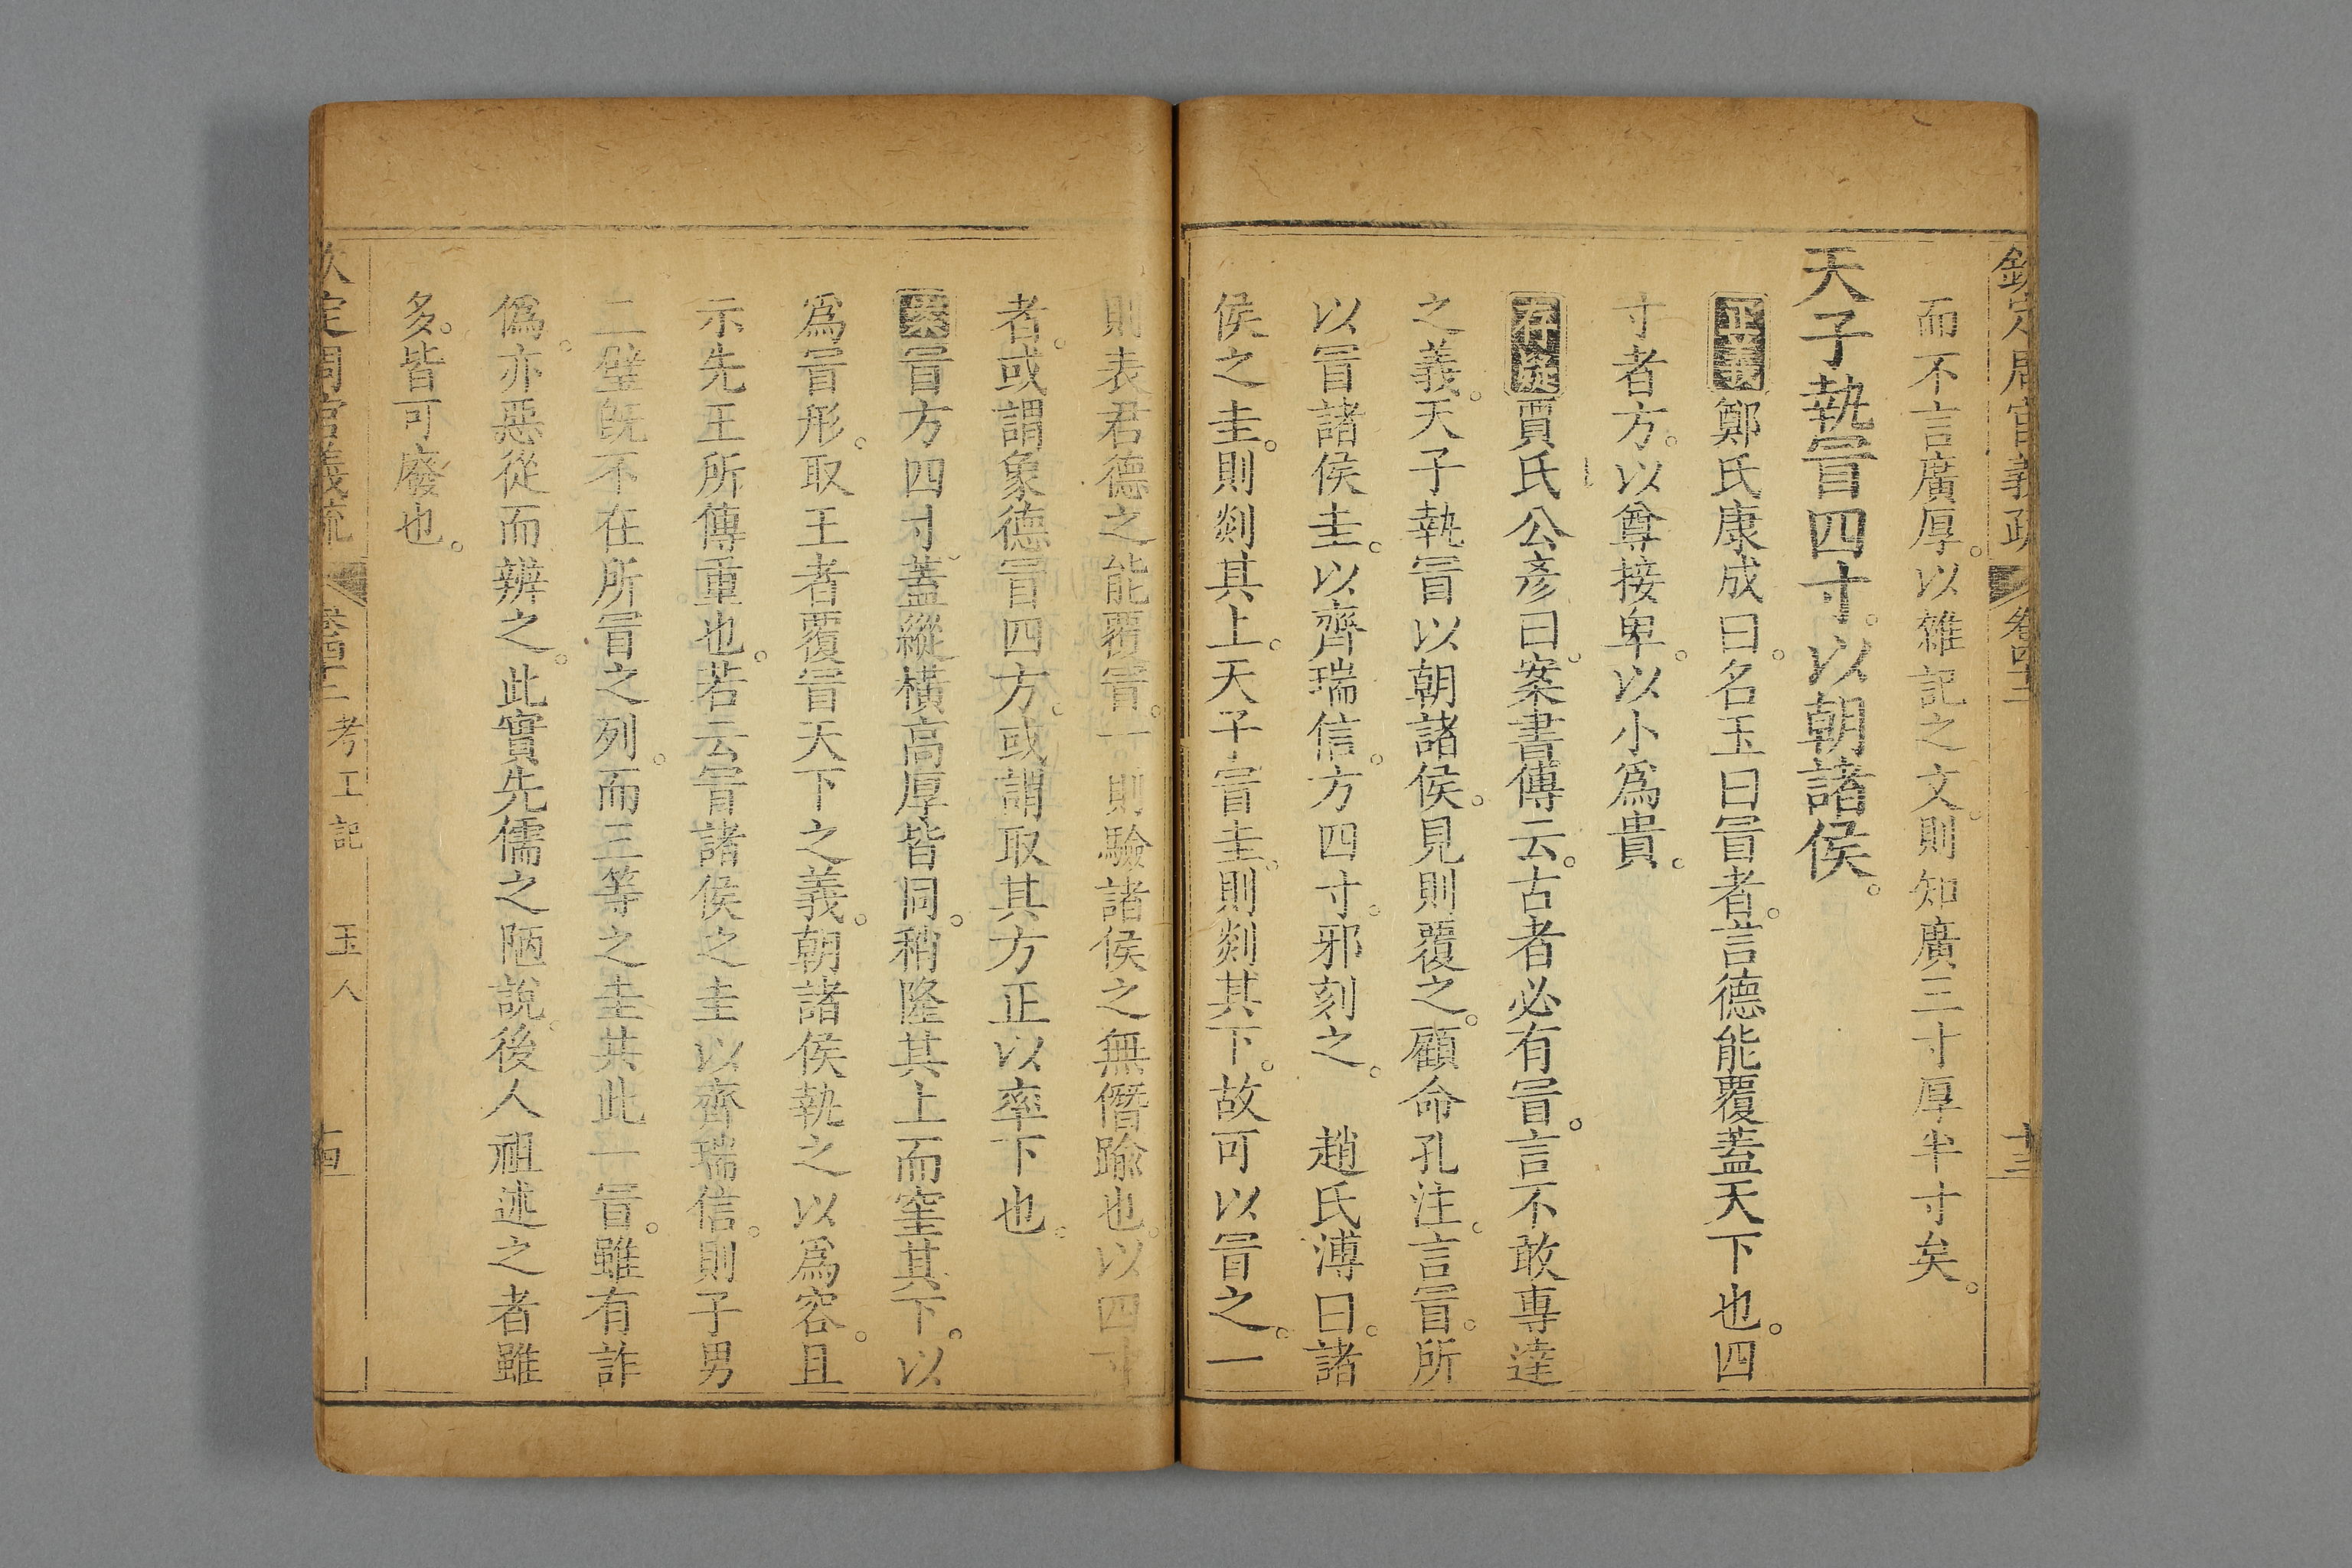 欽定周官義疏 卷四十三 十三
而不言廣厚。以雜記之文。則知廣三寸厚半寸矣。
天子執冒四寸。以朝諸侯。
正義鄭氏康成曰。名玉曰冒者。言德能覆蓋天下也。四
寸者方。以尊接卑。以小爲貴。
存疑賈氏公彥曰。案書傳云。古者必有冒。言不敢專達
之義。天子執冒以朝諸侯。見則覆之。顧命孔注。言冒。所
以冒諸侯圭。以齊瑞信。方四寸。邪刻之。 趙氏溥曰。諸
侯之圭。則剡其上。天子冒圭。則剡其下。故可以冒之。一
則表君德之能覆冒。一則驗諸侯之無僭踰也。以四寸
者。或謂象德冒四方。或謂取其方正以率下也。
案冒方四寸。蓋縱橫高厚皆同。稍隆其上而窐其下。以
爲冒形。取王者覆冒天下之義。朝諸侯執之以爲容。且
示先王所傳重也。若云冒諸侯之圭以齊瑞信。則子男
二璧旣不在所冒之列。而三等之圭共此一冒。雖有詐
僞。亦惡從而辨之。此實先儒之陋說。後人祖述之者雖
多。皆可廢也。
定周官義疏 考工記 玉人